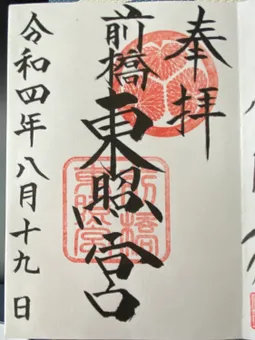 奉拝
前橋
東照宮
令和四年八月十九日
前橋東照宮